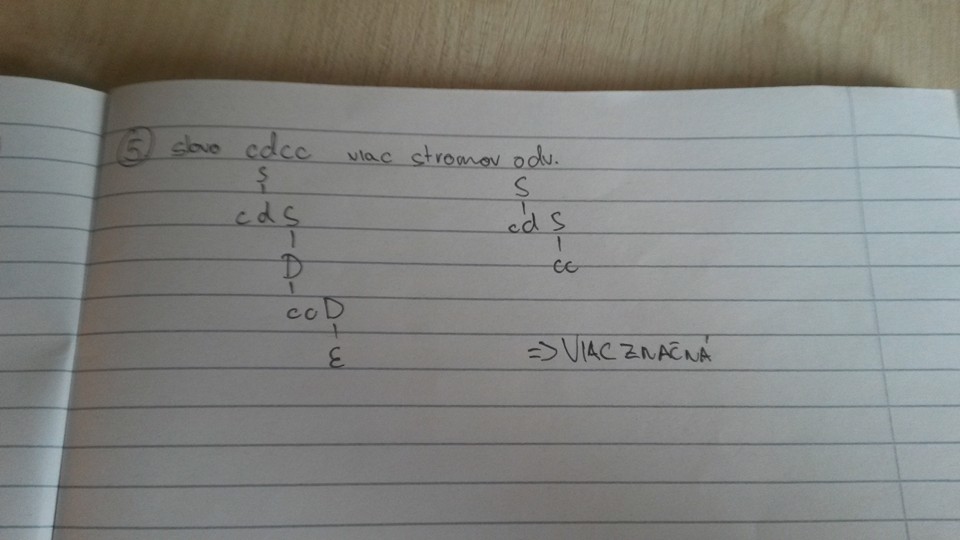 5 slovo cdcc viac stromov odv.
S S
cdS cdS
D cc
ccD
ε => VIACZNAČNÁ